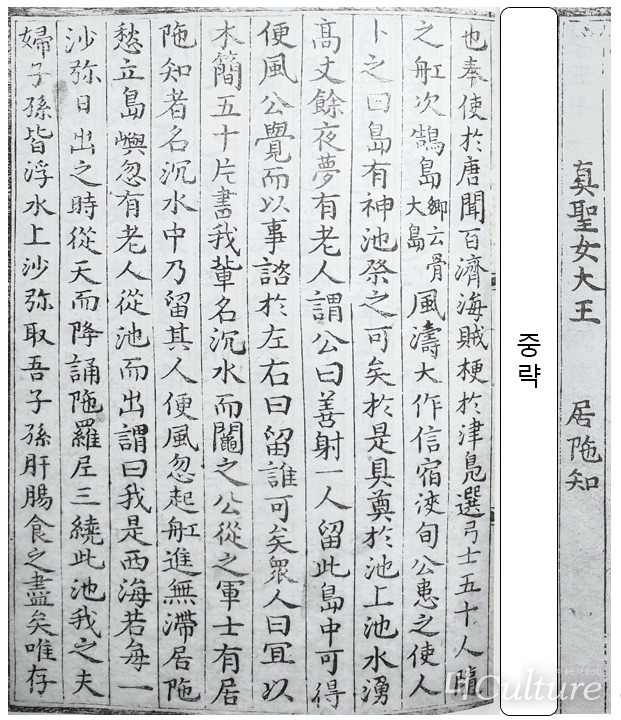 真聖女大王 居陁知
중략
也奉使於唐聞百濟海賊梗於津鳧選弓士五十人隨
之舡次鵠島鄕云骨大島風濤大作信宿浹旬公患之使人
卜之曰島有神池祭之可矣於是具奠於池上池水湧
髙丈餘夜夢有老人謂公曰善射一人留此島中可得
便風公覺而以事諮於左右曰留誰可矣衆人曰冝以
木簡五十片書我軰名沉水而鬮之公從之軍士有居
陁知者名沉水中乃留其人便風忽起舡進無滯居陁
愁立島嶼忽有老人從池而出謂曰我是西海若每一
沙弥日出之時從天而降誦陁羅尼三繞此池我之夫
婦子孫皆浮水上沙弥取吾子孫肝膓食之盡矣唯存
Culture